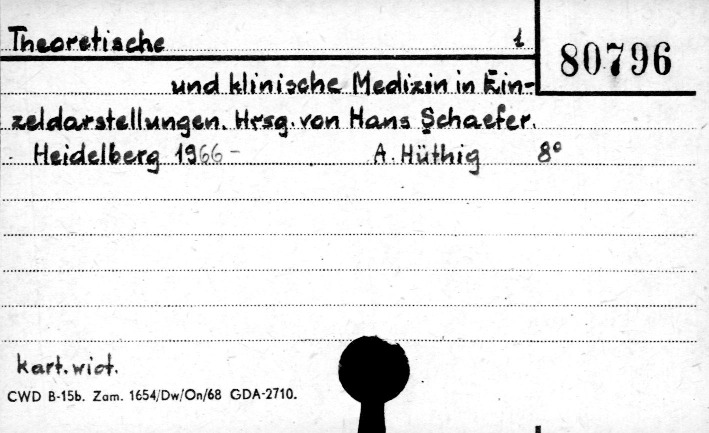 Theoretische 1
80796
und klinische Medizin in Ein-
zeldarstellungen. Hrsg. von Hans Schaefer.
Heidelberg 1966- A. Hüthig 8°
kart. wiot.
CWD B-15b. Zam. 1654/Dw/On/68 GDA-2710.